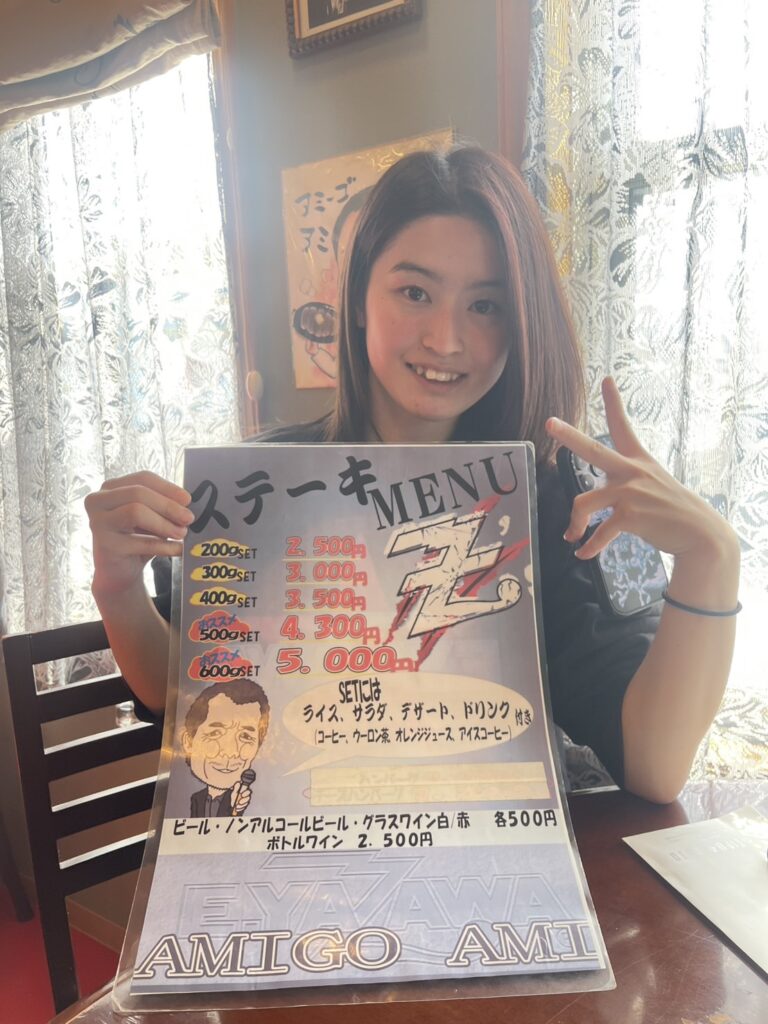 アミーゴ
アミ
ステーキMENU
200gSET 2.500円
300gSET 3.000円
400gSET 3.500円
オススメ
500gSET 4.300円
オススメ
600gSET 5.000円
SETには
ライス、サラダ、デザート、ドリンク付き
(コーヒー、ウーロン茶、オレンジジュース、アイスコーヒー)
ハンバーグ
ビール・ノンアルコールビール・グラスワイン白/赤 各500円
ボトルワイン 2.500円
E.YAZAWA
AMIGO AMI